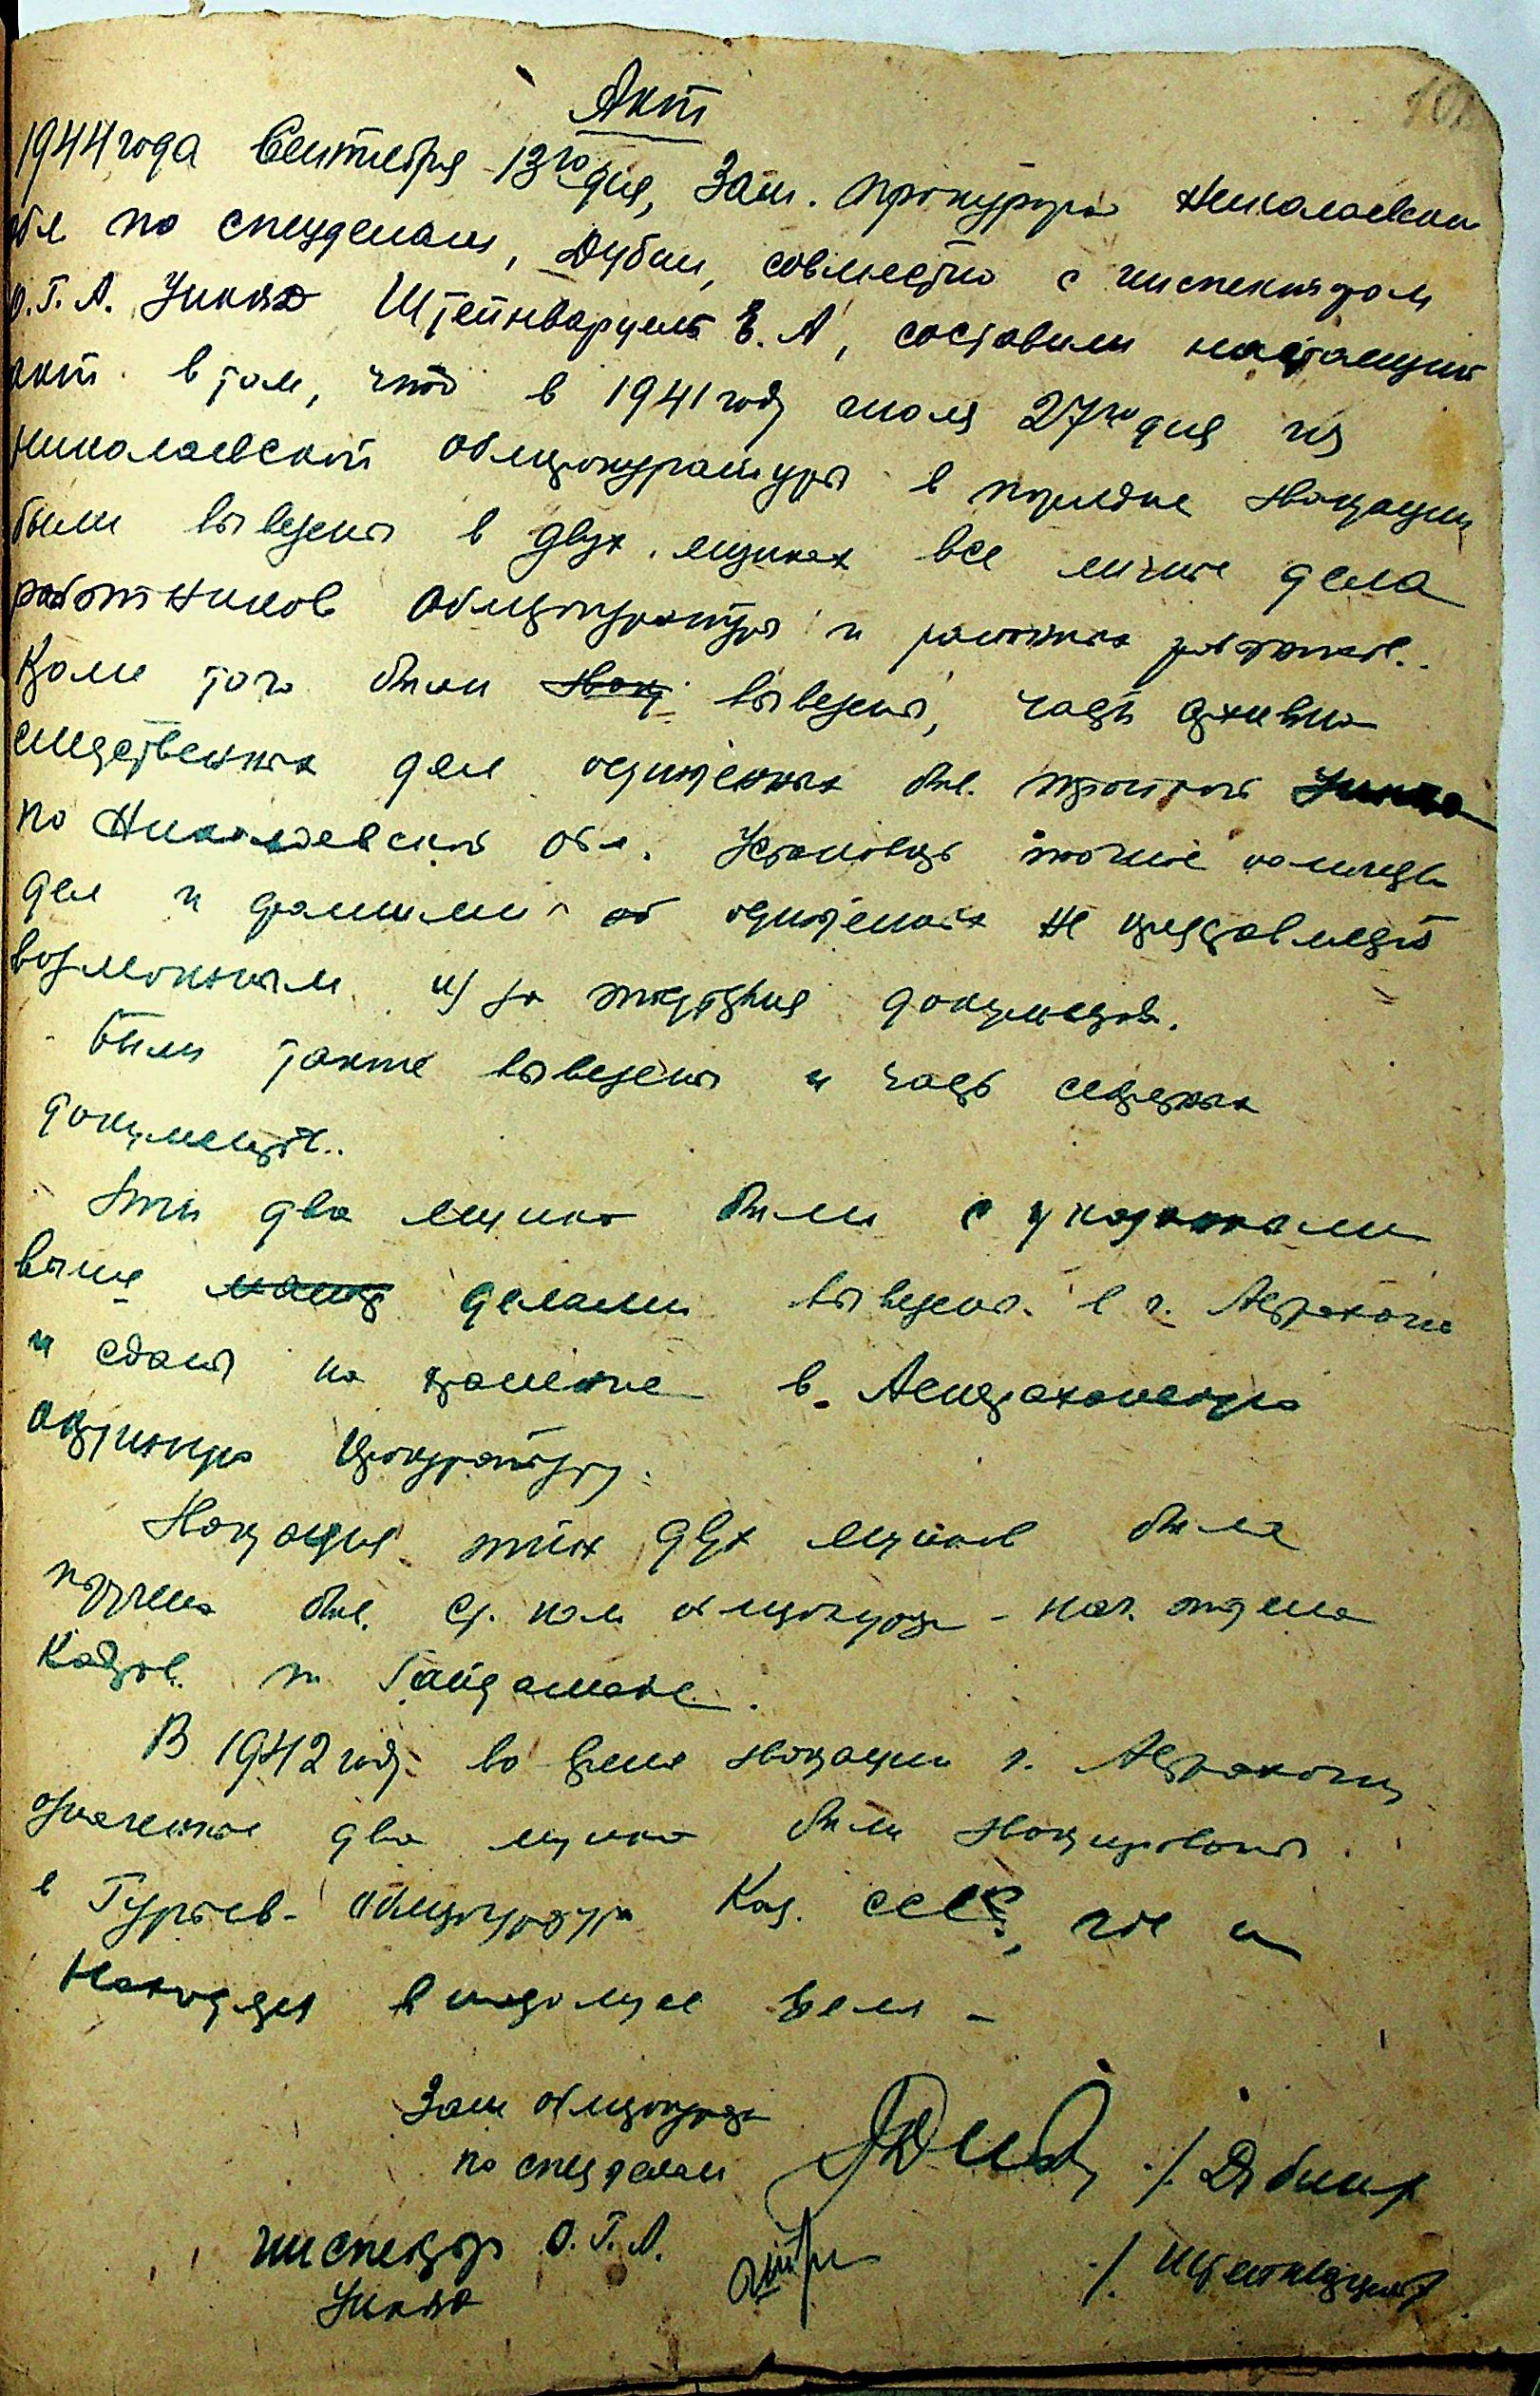 Акт
1944 года Сентября 13го дня, Зам. прокурора Николаевской
обл по спецделам, Дубин, совместно с инспектором
О.Г.А. Унквд Штейнварцель Е. А, составили настоящий
акт в том, что в 1941 году июля 27го дня из
Николаевской облпрокуратуры в порядке эвакуации
были вывезены в двух ящиках все личные дела
работников облпрокуратуры и районных работников.
Кроме того были вывезены, часть архивно
следственных дел осужденных быв. тройкой Унквд
по Николаевской обл. Установить точное количество
дел и фамилии осужденных не представляется
возможным из за отсутствия документов.
Были также вывезены и часть секретных
документов.
Эти два ящика были с указанными
выше делами вывезены в г. Астрахань
и сданы на хранение в Астраханскую
окружную прокуратуру.
Эвакуация этих двух ящиков была
поручена быв. ст. пом облпрокурора - нач. отдела
Кадров т Гайдамаке.
В 1942 году во время эвакуации г. Астрахани
означенные два ящика были эвакуированы
в Гурьев- облпрокуратуру Каз. ССР, где и
находятся в настоящее время -
Зам облпрокурора
по спецделам ./ Дубин /
инспектор О.Г.А.
Унквд